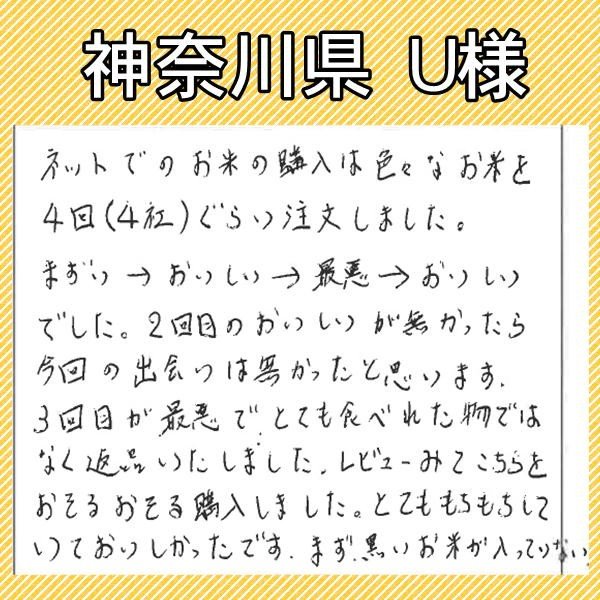 神奈川県 U様
ネットでのお米の購入は色々なお米を
4回(4社)ぐらい注文しました。
まずい→おいしい→最悪→おいしい
でした。2回目のおいしいが無かったら
今回の出会いは無かったと思います.
3回目が最悪で、とても食べれた物では
なく返品いたしました.レビューみてこちらを
おそるおそる購入しました。とてももちもちして
いておいしかったです.まず黒いお米が入っていない